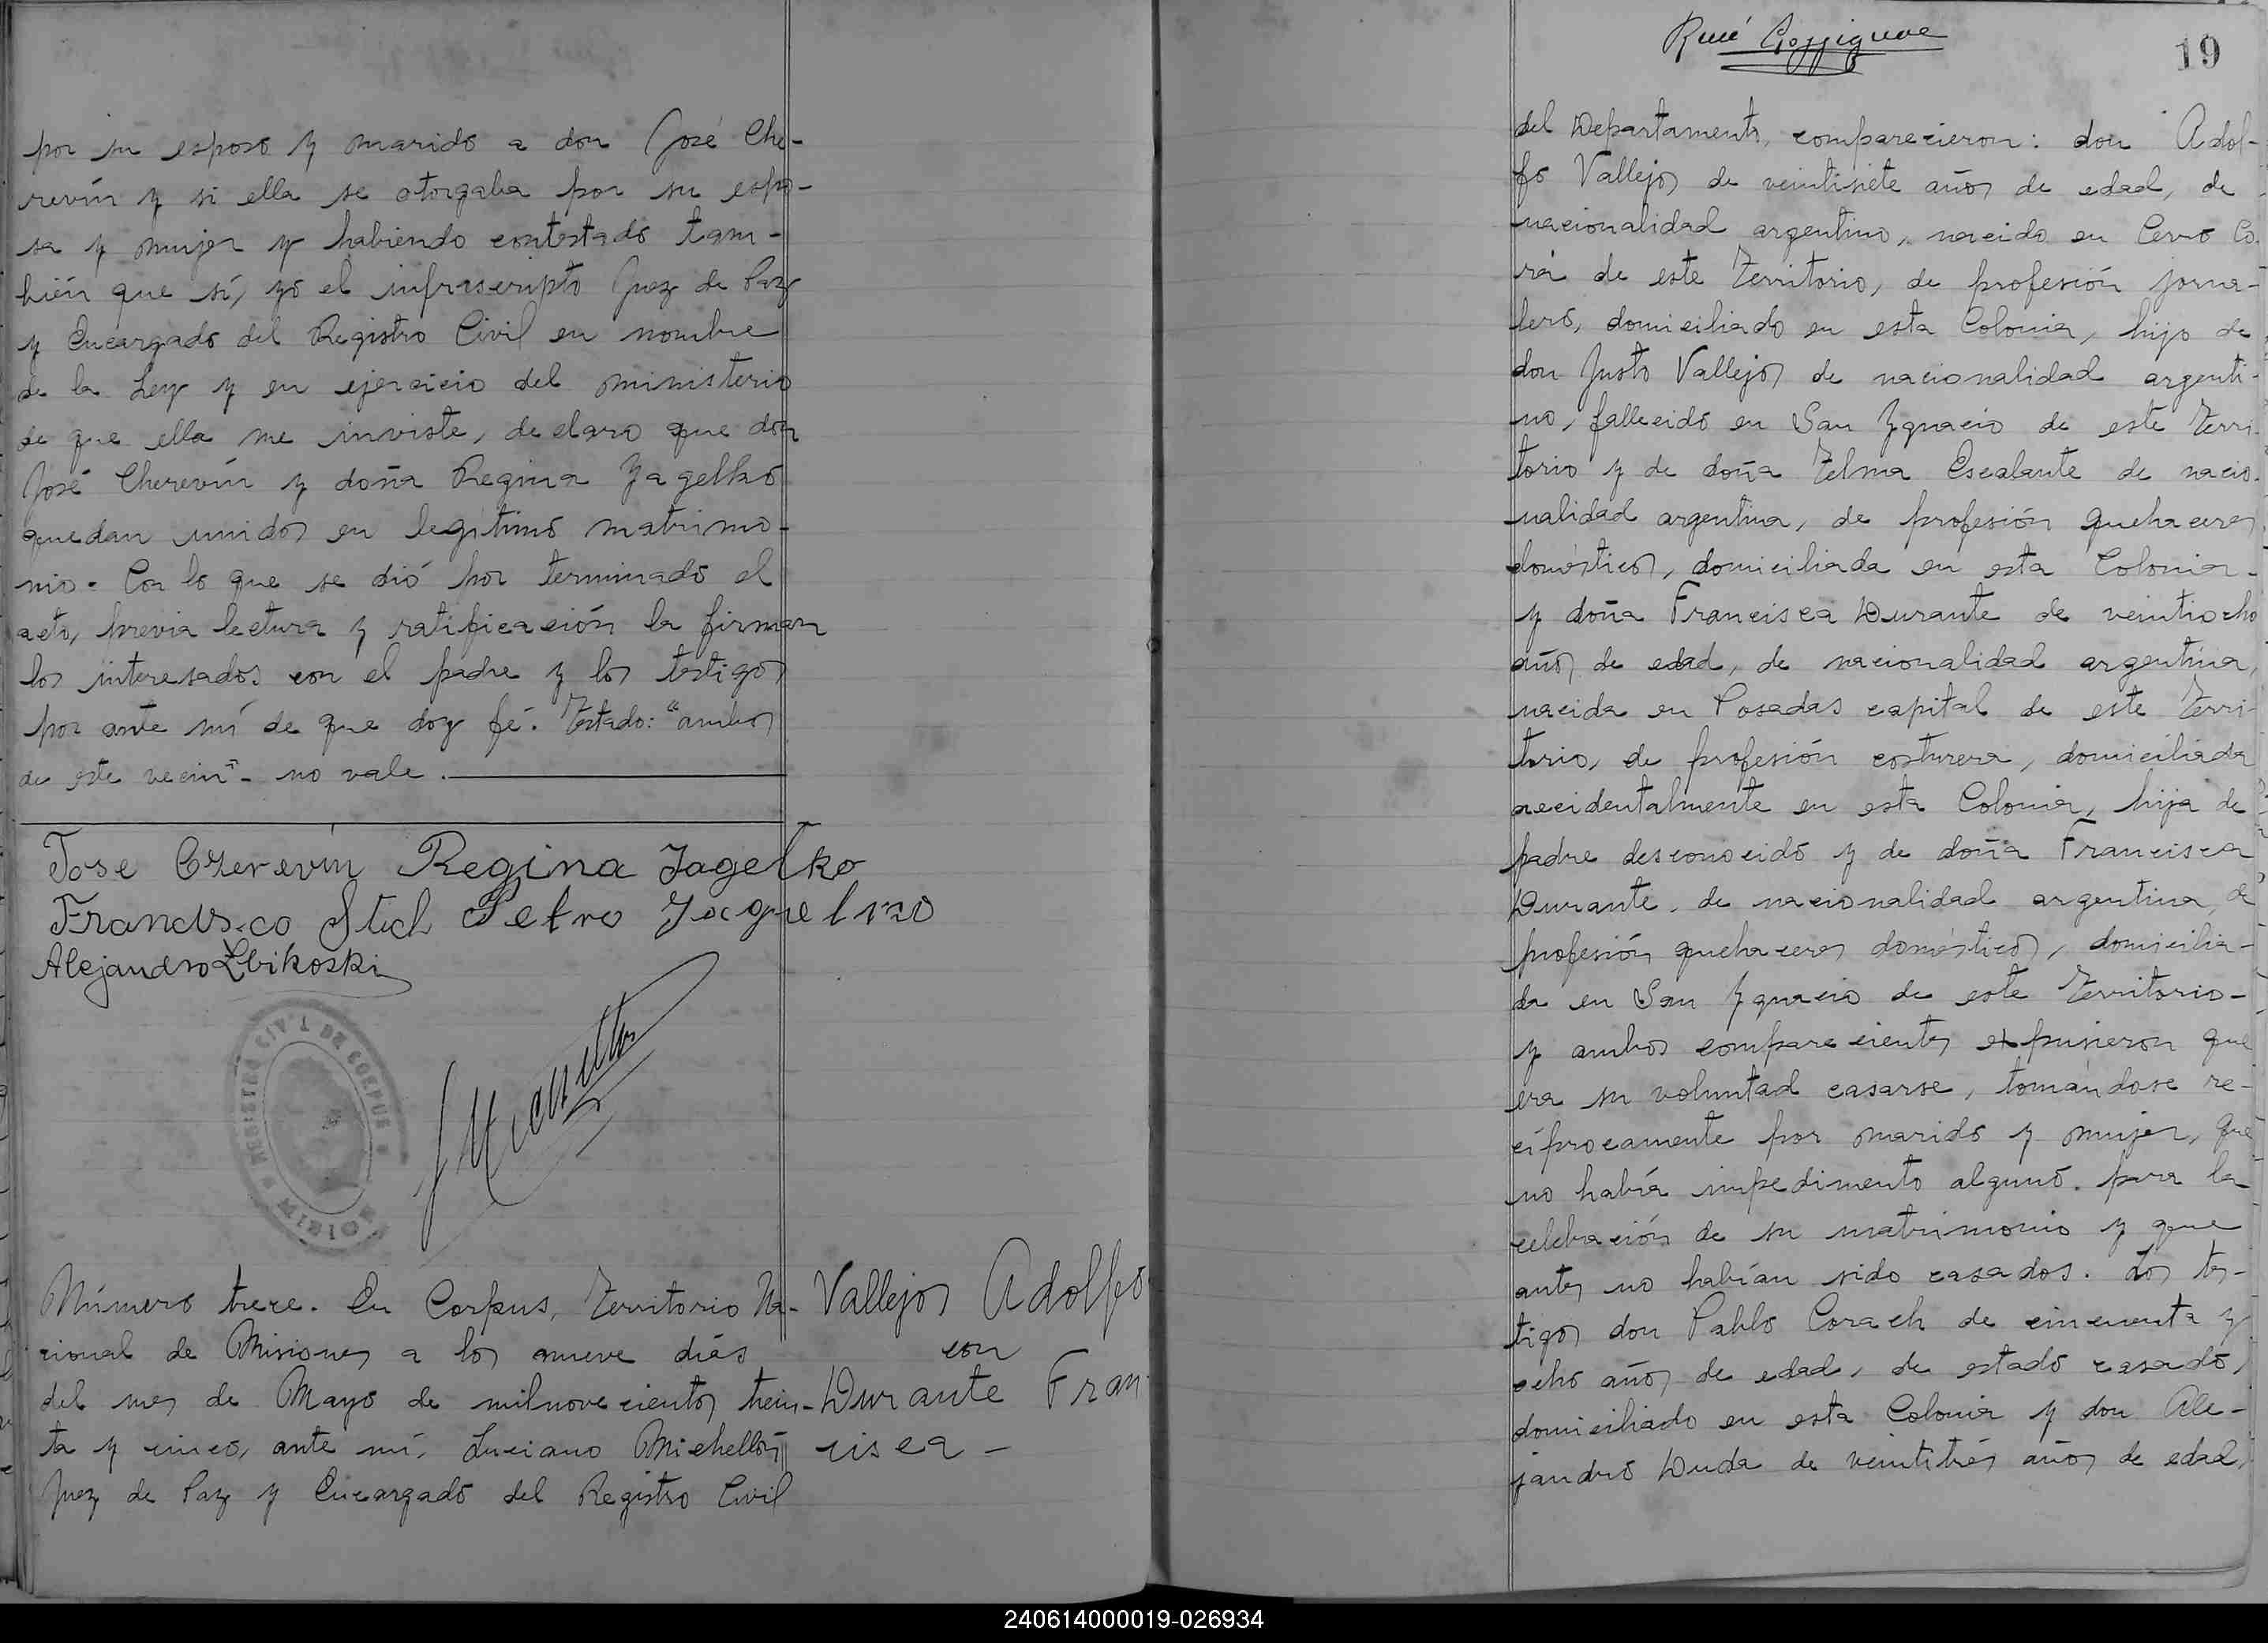 por su esposo y marido a don José Che-
revín y si ella se otorgaba por su espo-
sa y mujer y habiendo contestado tam-
bién que sí, yo el infrascripto Juez de Paz
y Encargado del Registro Civil en nombre
de la Ley y en ejercicio del ministerio
de que ella me inviste, declaro que don
José Cherevín y doña Regina Yagelko
quedan unidos en legítimo matrimo-
nio. Con lo que se dió por terminado el
acto, previa lectura y ratificación la firman
los interesados con el padre y los testigos
por ante mí de que doy fé. Testado: "ambos
de este vecin" - no vale.
Jose Czerevin Regina Jagelko
Francisco Stich Petro
Alejandro Zbikoski
REGISTRO CIVIL DE CORPUS
MISIONES
Número trece. En Corpus, Territorio Na-
cional de Misiones a los nueve días
del mes de Mayo de milnovecientos trein-
ta y cinco, ante mí, Luciano Michellón
Juez de Paz y Encargado del Registro Civil
Vallejos Adolfo
con
Durante Fran-
cisca -
René
19
del Departamento, comparecieron: don Adol-
fo Vallejos de veintisiete años de edad, de
nacionalidad argentino, nacido en Cerro Co-
rá de este Territorio, de profesión jorna-
lero, domiciliado en esta Colonia, hijo de
don Justo Vallejos de nacionalidad argenti-
no, fallecido en San Ygnacio de este Terri-
torio y de doña Telma Escalante de nacio-
nalidad argentina, de profesión quehaceres
domésticos, domiciliada en esta Colonia -
y doña Francisca Durante de veintiocho
años de edad, de nacionalidad argentina,
nacida en Posadas capital de este Terri-
torio, de profesión costurera, domiciliada
accidentalmente en esta Colonia, hija de
padre desconocido y de doña Francisca
Durante, de nacionalidad argentina, de
profesión quehaceres domésticos, domicilia-
da en San Ygnacio de este Territorio -
y ambos comparecientes expusieron que
era su voluntad casarse, tomándose re-
cíprocamente por marido y mujer, que
no había impedimento alguno para la
celebración de su matrimonio y que
antes no habían sido casados. Los tes-
tigos don Pablo Corach de cincuenta y
ocho años de edad, de estado casado,
domiciliado en esta Colonia y don Ale-
jandro Duda de veintitrés años de edad,
240614000019-026934